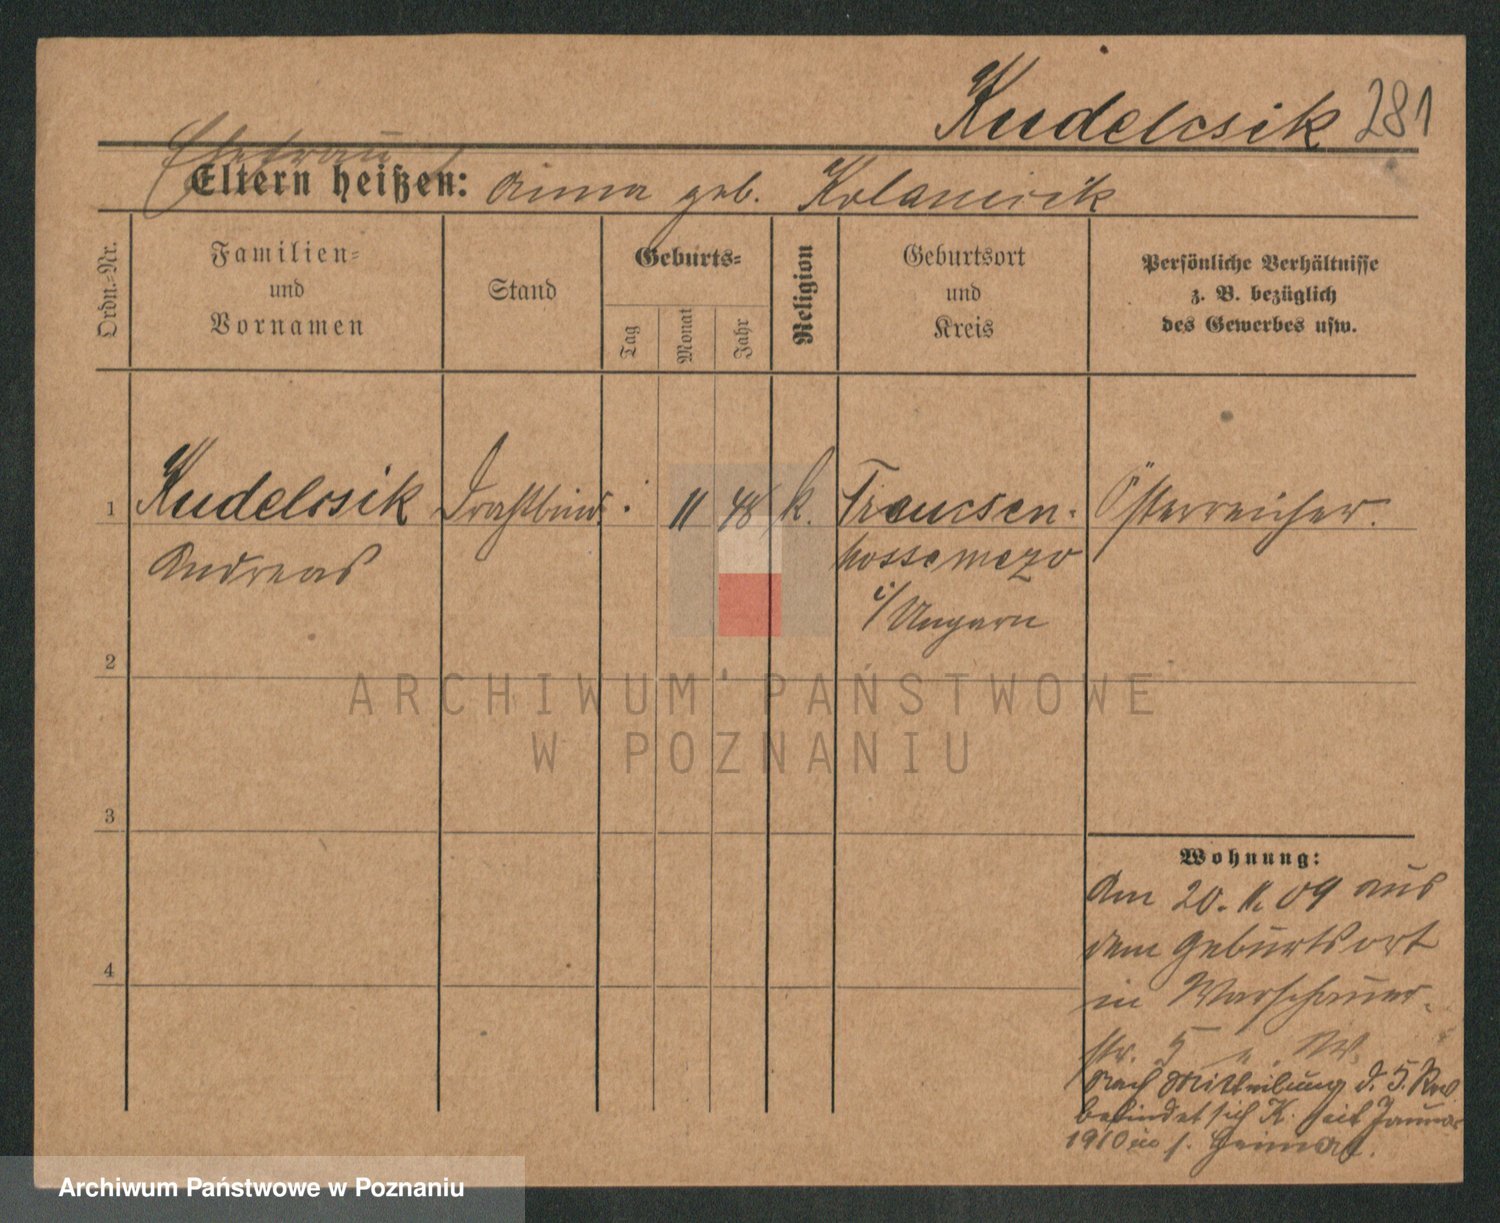 Kudelcsik 281
Ehefrau
Eltern heißen: Anna geb. Kolancsik
Ordn.-Nr.
Familien-
und
Vornamen
Stand
Geburts-
Tag
Monat
Jahr
Religion
Geburtsort
und
Kreis
Persönliche Verhältnisse
z. B. bezüglich
des Gewerbes usw.
1 Kudelcsik Drahtbind. 11 48 k. Trencsen- Österreicher.
Andreas
Kossemezo
i/Ungarn
2
3
4
Wohnung:
Am 20. 11. 09 aus
dem Geburtsort
in Warschauer-
str. 5
Nach Mitteilung d. 5. Rev
befindet sich K. seit Januar
1910 in s. Heimat.
ARCHIWUM PAŃSTWOWE
W POZNANIU
Archiwum Państwowe w Poznaniu